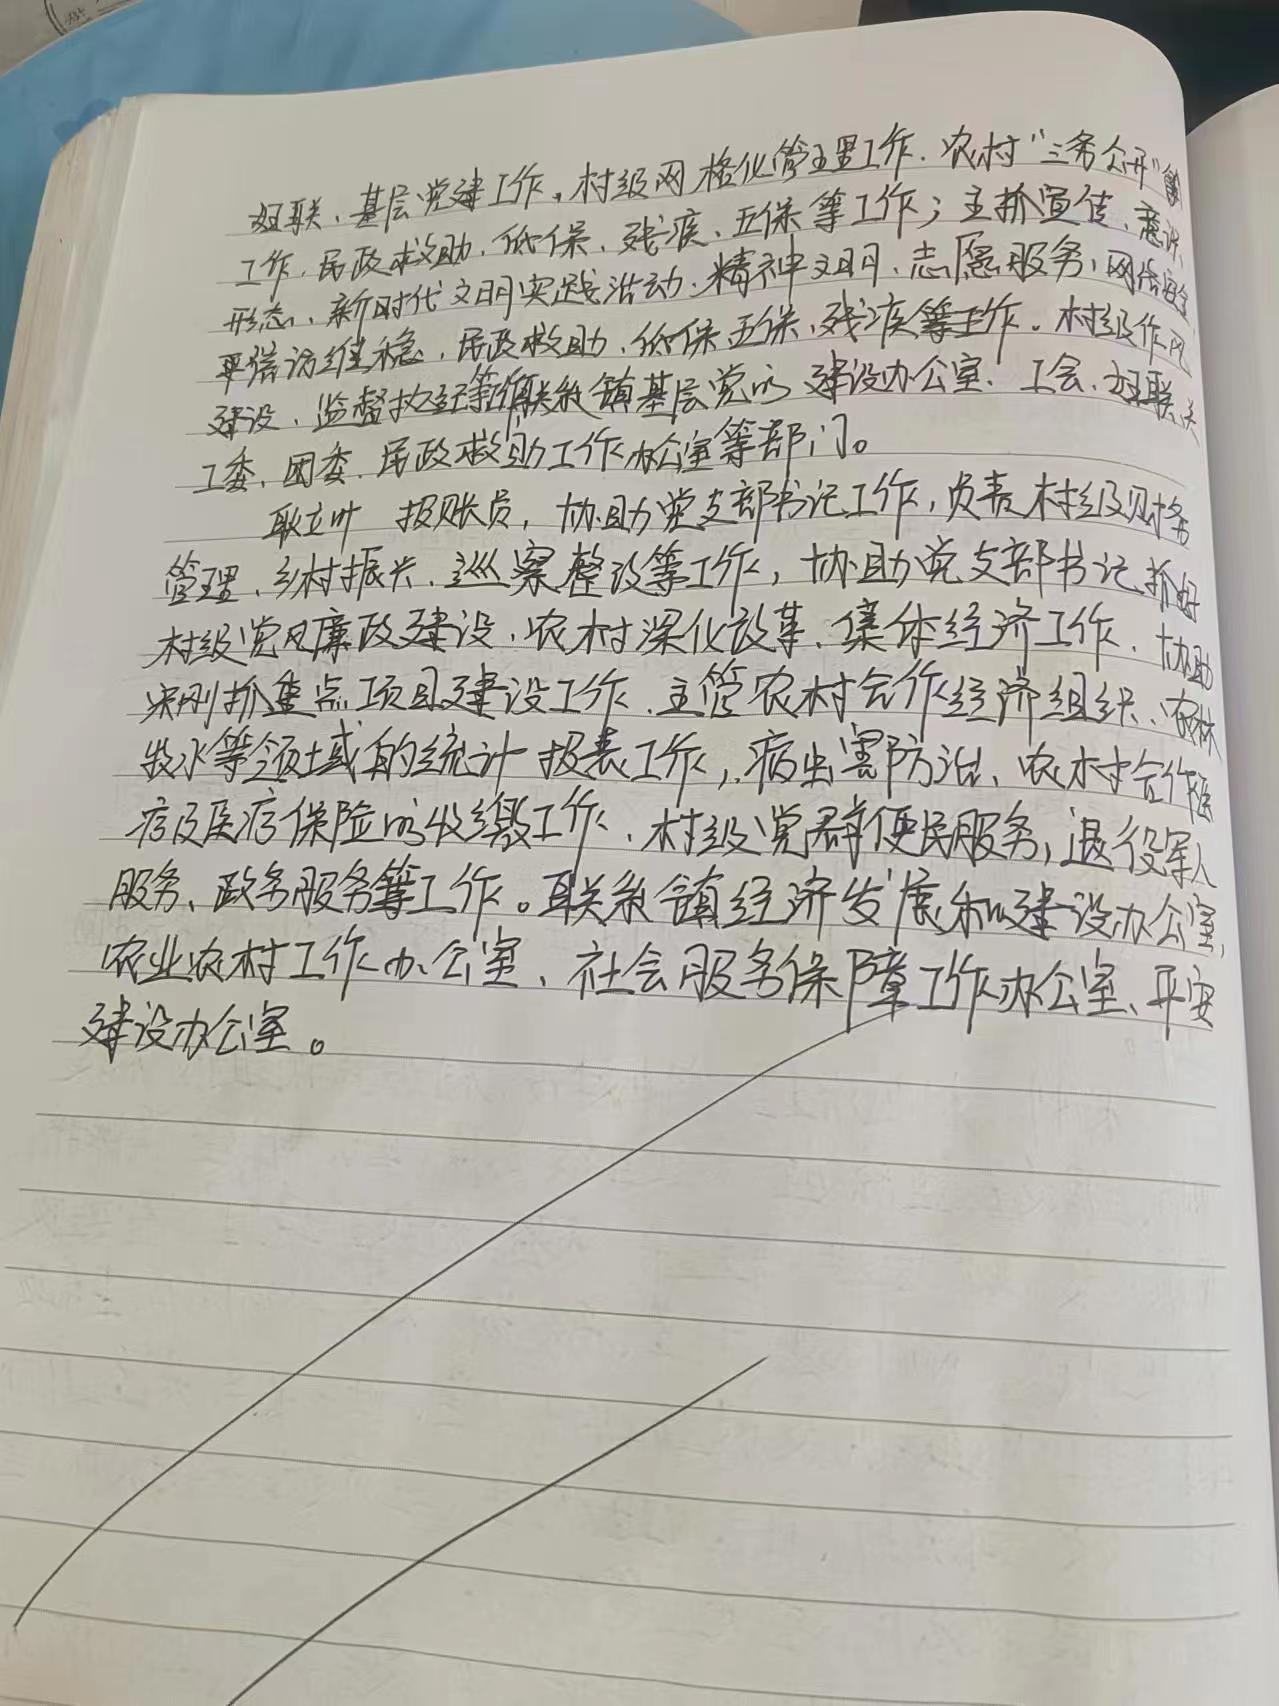 妇联、基层党建工作。村级网格化管理工作、农村“三务公开”等
工作、民政救助、低保、残疾、五保等工作；主抓宣传、意识
形态、新时代文明实践活动、精神文明、志愿服务、网络安全
平信访维稳、民政救助、低保五保、残疾等工作。村级作风
建设、监督执纪等 联系镇基层党的建设办公室、工会、妇联、关
工委、团委、民政救助工作办公室等部门。
耿立叶 报账员，协助党支部书记工作，负责村级财务
管理、乡村振兴、巡察整改等工作，协助党支部书记抓好
村级党风廉政建设、农村深化改革、集体经济工作、协助
宋刚抓重点项目建设工作、主管农村合作经济组织、农林
牧水等领域的统计报表工作，病虫害防治、农村合作医
疗及医疗保险的收缴工作、村级党群便民服务，退役军人
服务、政务服务等工作。联系镇经济发展和建设办公室，
农业农村工作办公室、社会服务保障工作办公室、平安
建设办公室。